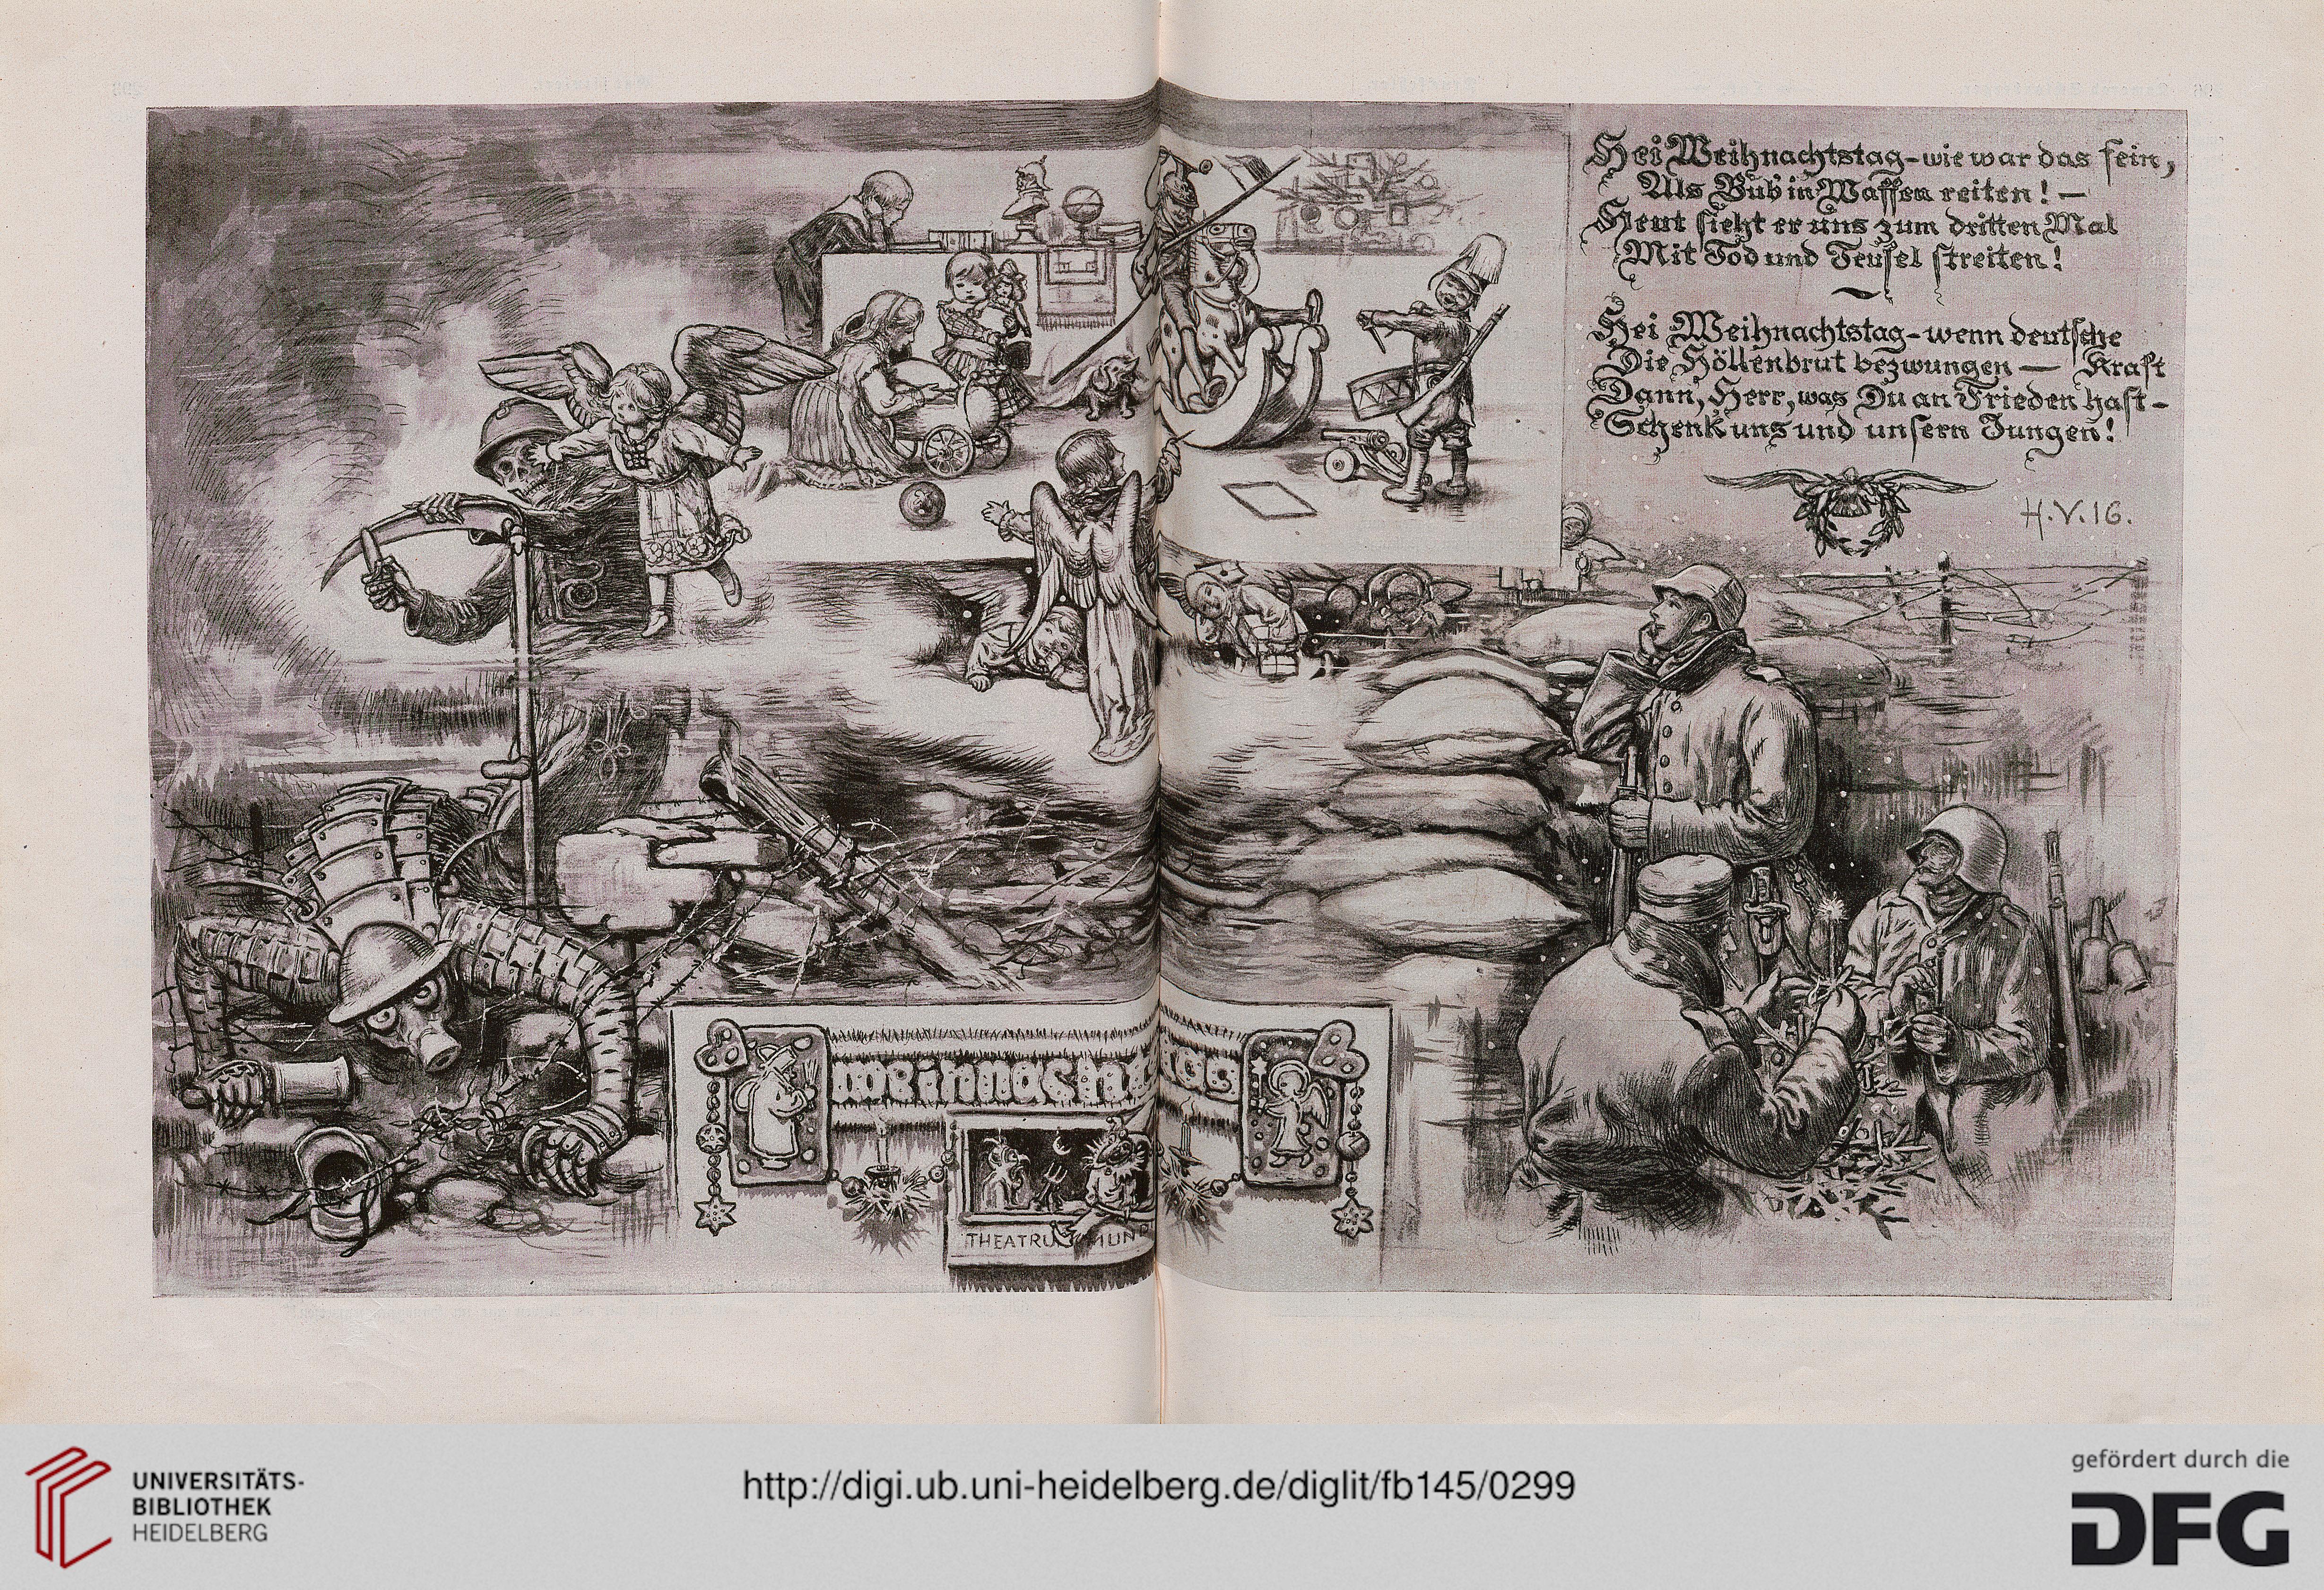 Hei Weihnachtstag - wie war das fein,
Als Bub in Waffen reiten! —
Heut sieht er uns zum dritten Mal
Mit Tod und Teufel streiten!
Hei Weihnachtstag - wenn deutsche Kraft
Die Höllenbrut bezwungen —
Dann, Herr, was Du an Frieden hast -
Schenk uns und unsern Jungen!
H.V.16.
Weihnachtstag
THEATRU MUN
UNIVERSITÄTS-
BIBLIOTHEK
HEIDELBERG
http://digi.ub.uni-heidelberg.de/diglit/fb145/0299
gefördert durch die
DFG